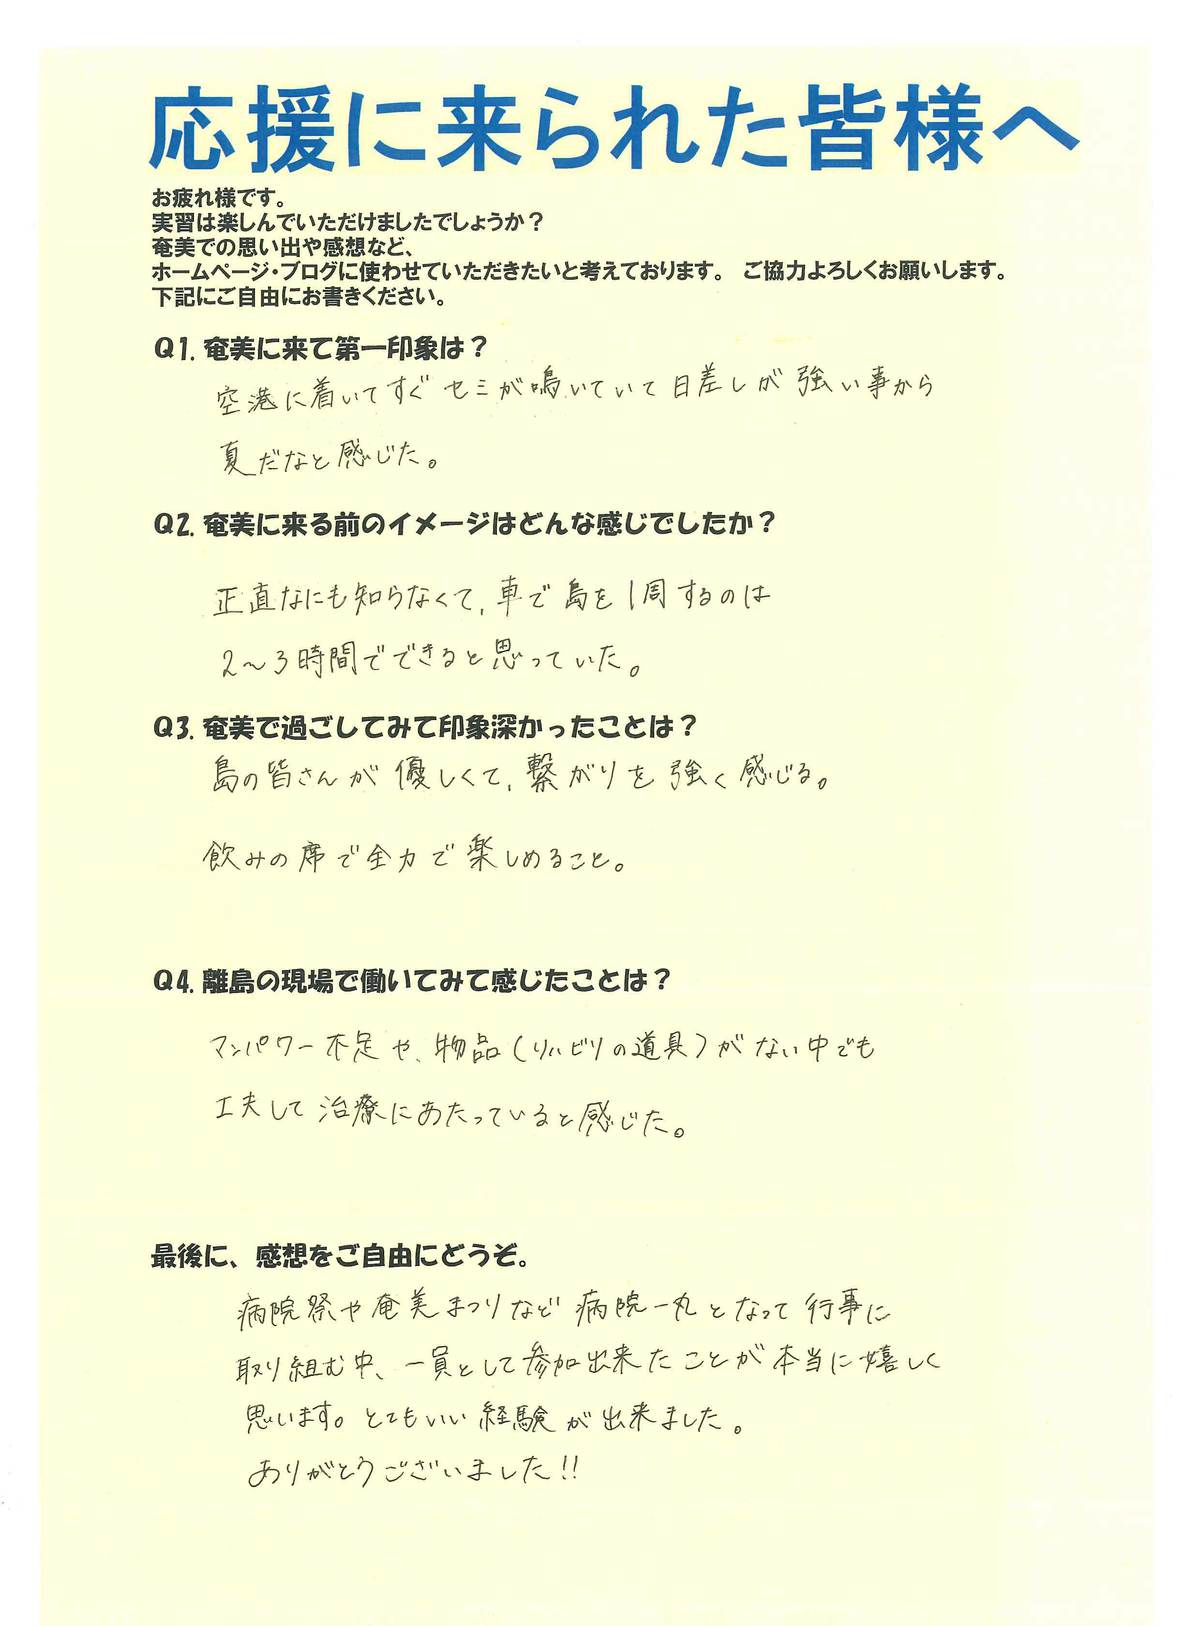 応援に来られた皆様へ
お疲れ様です。
実習は楽しんでいただけましたでしょうか？
奄美での思い出や感想など、
ホームページ・ブログに使わせていただきたいと考えております。 ご協力よろしくお願いします。
下記にご自由にお書きください。
Q1. 奄美に来て第一印象は？
空港に着いてすぐセミが鳴いていて日差しが強い事から
夏だなと感じた。
Q2. 奄美に来る前のイメージはどんな感じでしたか？
正直なにも知らなくて、車で島を1周するのは
2〜3時間でできると思っていた。
Q3. 奄美で過ごしてみて印象深かったことは？
島の皆さんが優しくて、繋がりを強く感じる。
飲みの席で全力で楽しめること。
Q4. 離島の現場で働いてみて感じたことは？
マンパワー不足や、物品（リハビリの道具）がない中でも
工夫して治療にあたっていると感じた。
最後に、感想をご自由にどうぞ。
病院祭や奄美まつりなど病院一丸となって行事に
取り組む中、一員として参加出来たことが本当に嬉しく
思います。とてもいい経験が出来ました。
ありがとうございました!!